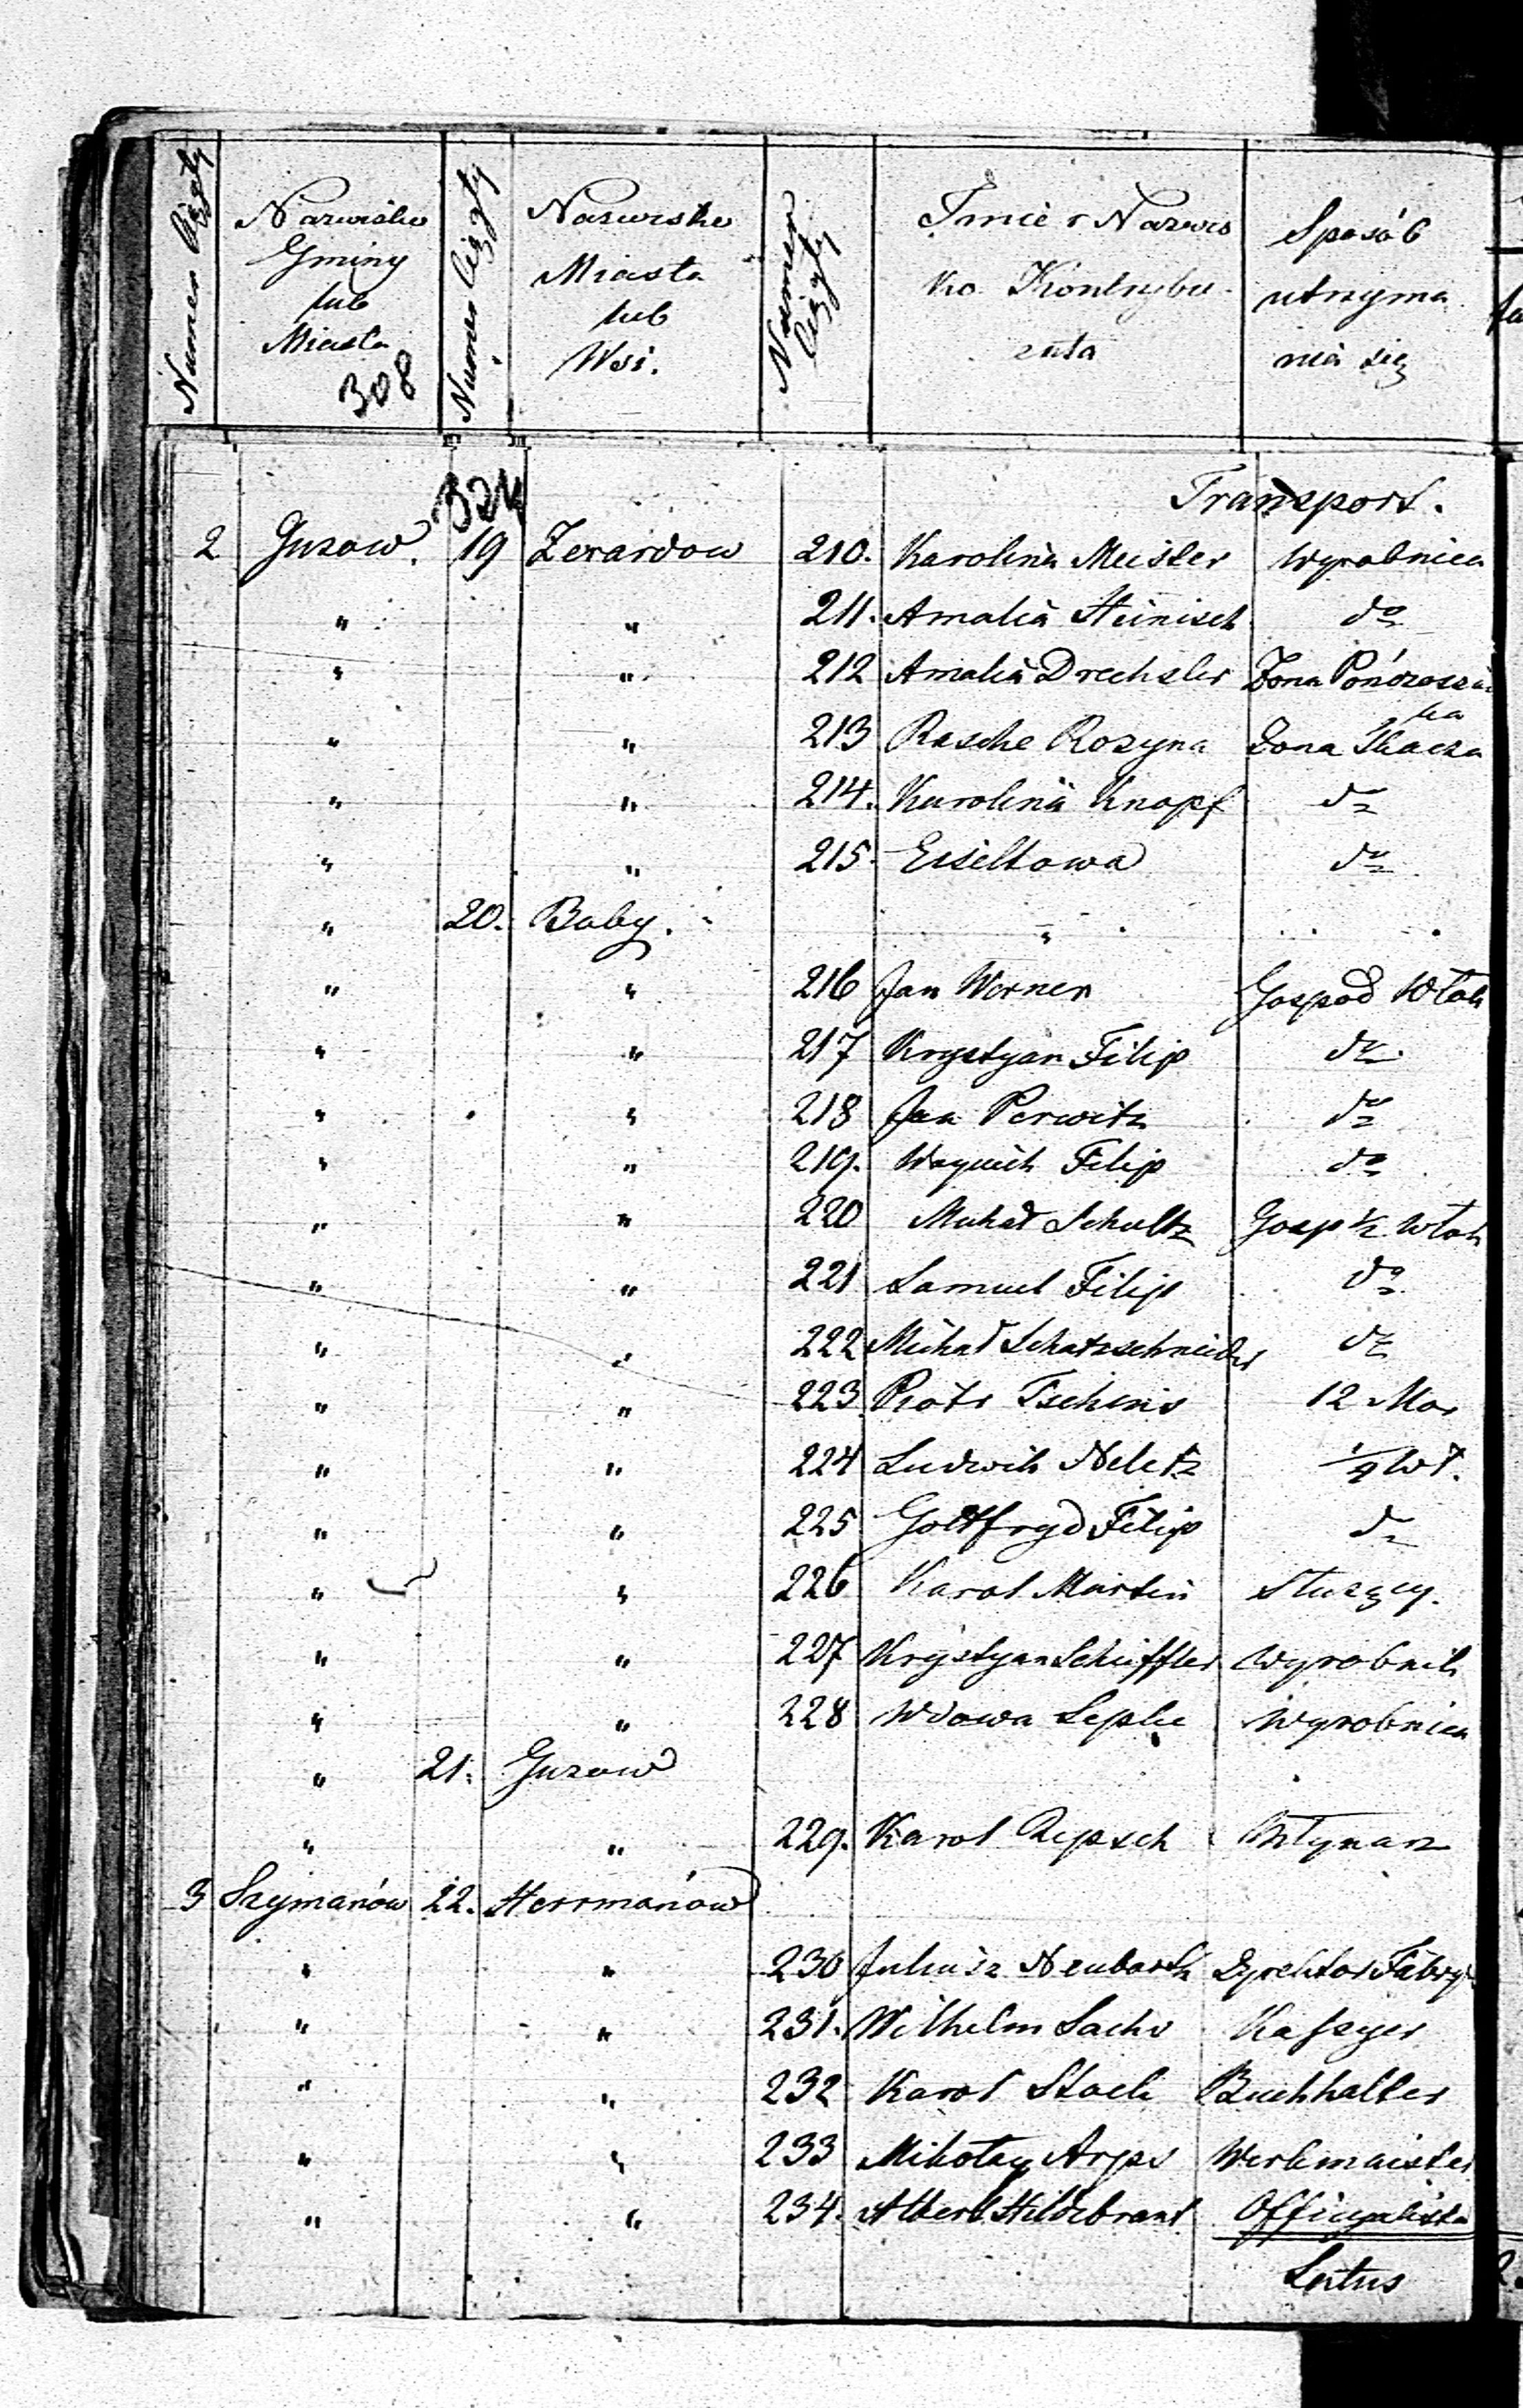 Numer bieżący
Nazwisko Gminy lub Miasta
308
Numer bieżący
Nazwisko Miasta lub Wsi.
Numer bieżący
Imie i Nazwis ko Kontrybu- enta
Sposób utrzyma nia się
324
Transport.
2 Guzow. 19 Zerardow 210. Karolina Meister Wyrobnica
" " 211. Amalia Heinisch do
" " 212 Amalia Drechsler Zona Pończoszni ka
" " 213 Rasche Rozyna Zona Tkacza
" " 214. Karolina Knopf do
" " 215. Eiseltowa do
" 20. Baby. "
" " 216 Jan Werner Gospod Włok
" " 217 Krystyan Filip do
" " 218 Jan Perwitz do
" " 219. Woyciech Filip do
" " 220 Michał Schultz Gosp 1/2 Włok
" " 221 Samuel Filip do
" " 222 Michał Schatzschneider do
" " 223 Piotr 12 Mor
" " 224 Ludwik Neletz 1/4 Wł.
" " 225 Gottfryd Filip do
" " 226 Karol Martin Służący.
" " 227 Krystyan Scheiffler Wyrobnik
" " 228 Wdowa Lepke Wyrobnica
" 21. Guzow
" " 229. Karol Repsch Młynarz
3 Szymanów 22. Herrmanów
" " 230 Juliusz Neubarth Dyrektor Fabry
" " 231. Wilhelm Sachs Kassyer
" " 232 Karol Stock Buchhalter
" " 233 Mikołay Arps Werkmaister
" " 234. Albert Hildebrant Officyalista
Latus